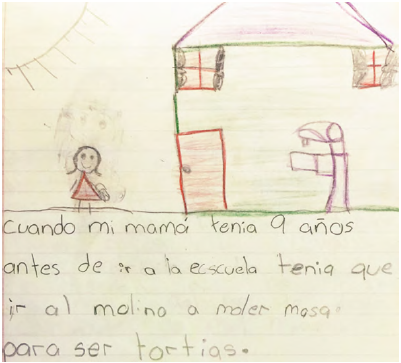 Cuando mi mamá tenia 9 años
antes de ir a la ecscuela tenia que
ir al molino a moler masa
para ser tortias.